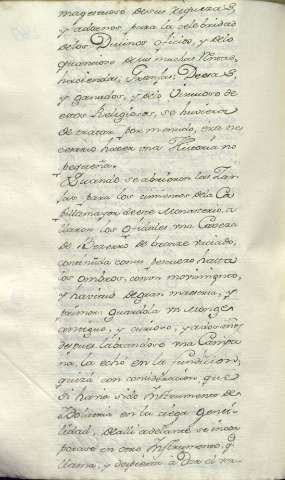 magestuoso de sus riquezas,
y adornos para la celebridad
de los Divinos oficios, y de lo
quantioso de sus muchas Rentas,
haciendas, Granjas, Deesas,
y ganados, y de lo virtuoso de
estos Religiosos, se huviera
de tratar por menudo, era ne
cesario hacer una Historia no
pequeña.
Quando se abrieron las Zan
jas para los cimientos de la Ca
pilla mayor de este Monasterio, a
llaron los oficiales una Caveza
de Bezerro de bronze vaciado,
continuada con su pescuezo hasta
los ombros, con un movimiento,
y havitud de gran maestria, y
primor: guardola un Monge
antiguo, y curioso, y años
despues labrandose una Campa
na, la echó en la fundicion,
quizá con consideracion, que
si havia sido instrumento de
Idolatria en la ciega Genti
lidad, de alli adelante se incor
porase en otro Instrumento, q
llama, y despierta a Dios el